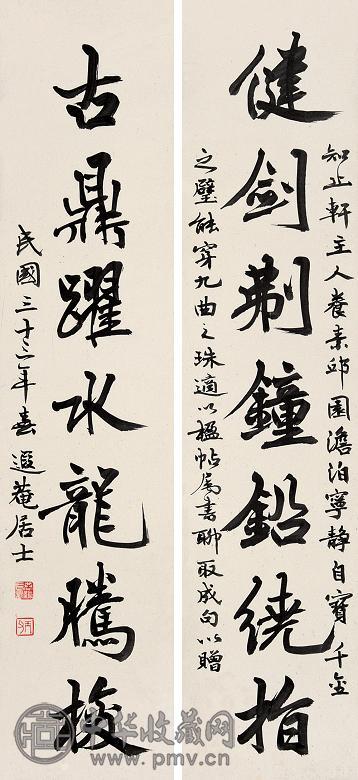 健劍剸鐘鉛繞指
知止軒主人養素邱園澹泊寧静自寶千金
之璧能穿九曲之珠適以楹帖属書聊取成句以贈
古鼎躍水龍騰梭
民國三十三年春遐菴居士
中华收藏网
www.pmv.cn
中华收藏网
www.pmv.cn